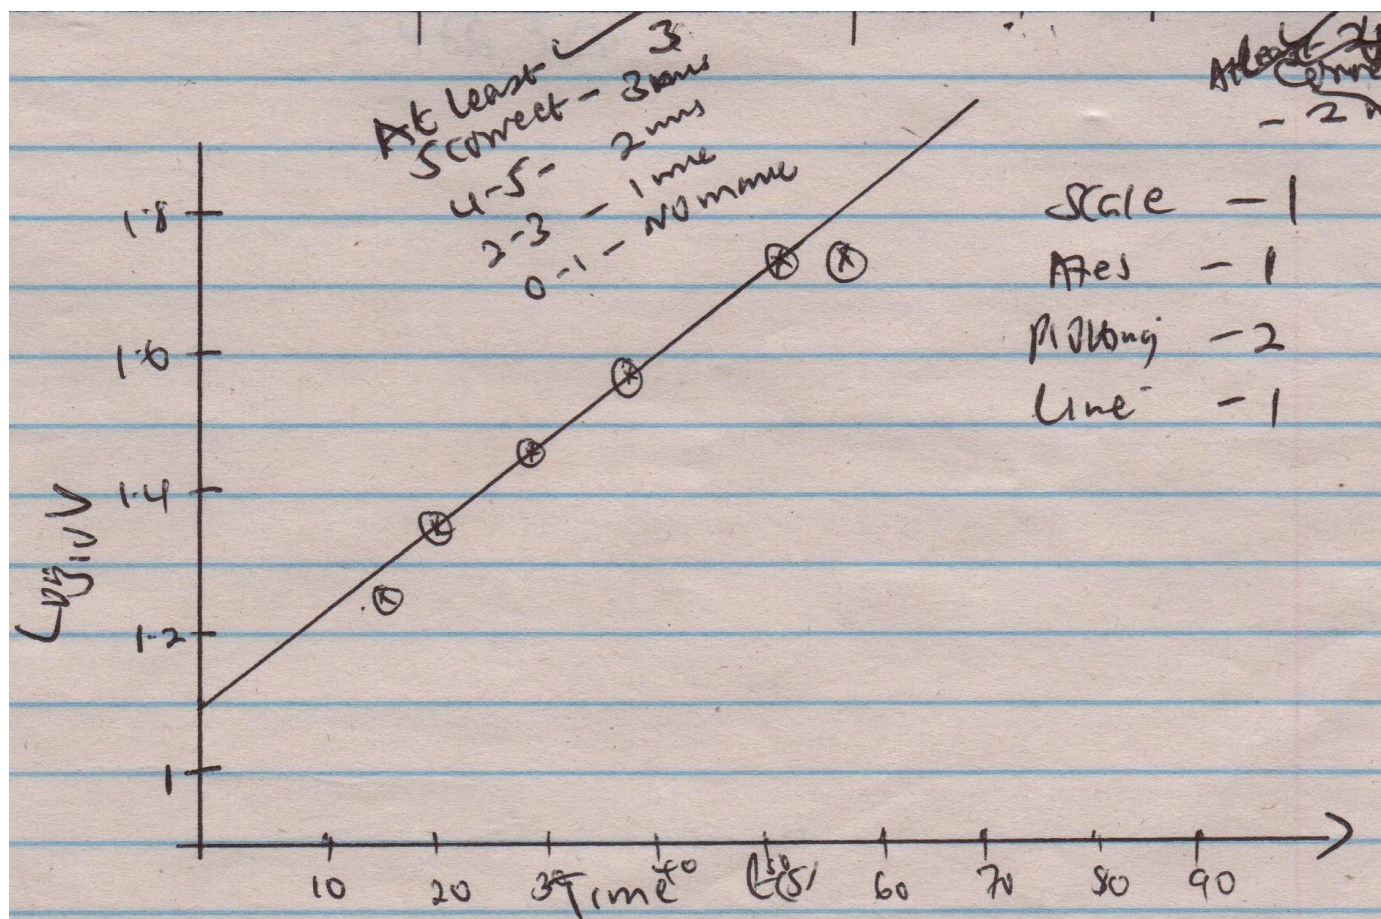 3
At least
5 correct - 3 mks
4-5 - 2 mks
2-3 - 1 mk
0-1 - No mark
At least
- 2
Scale - 1
Axes - 1
Plotting - 2
Line - 1
1.8
1.6
1.4
1.2
1
Log10 V
10 20 30 40 50 60 70 80 90
Time t(s)